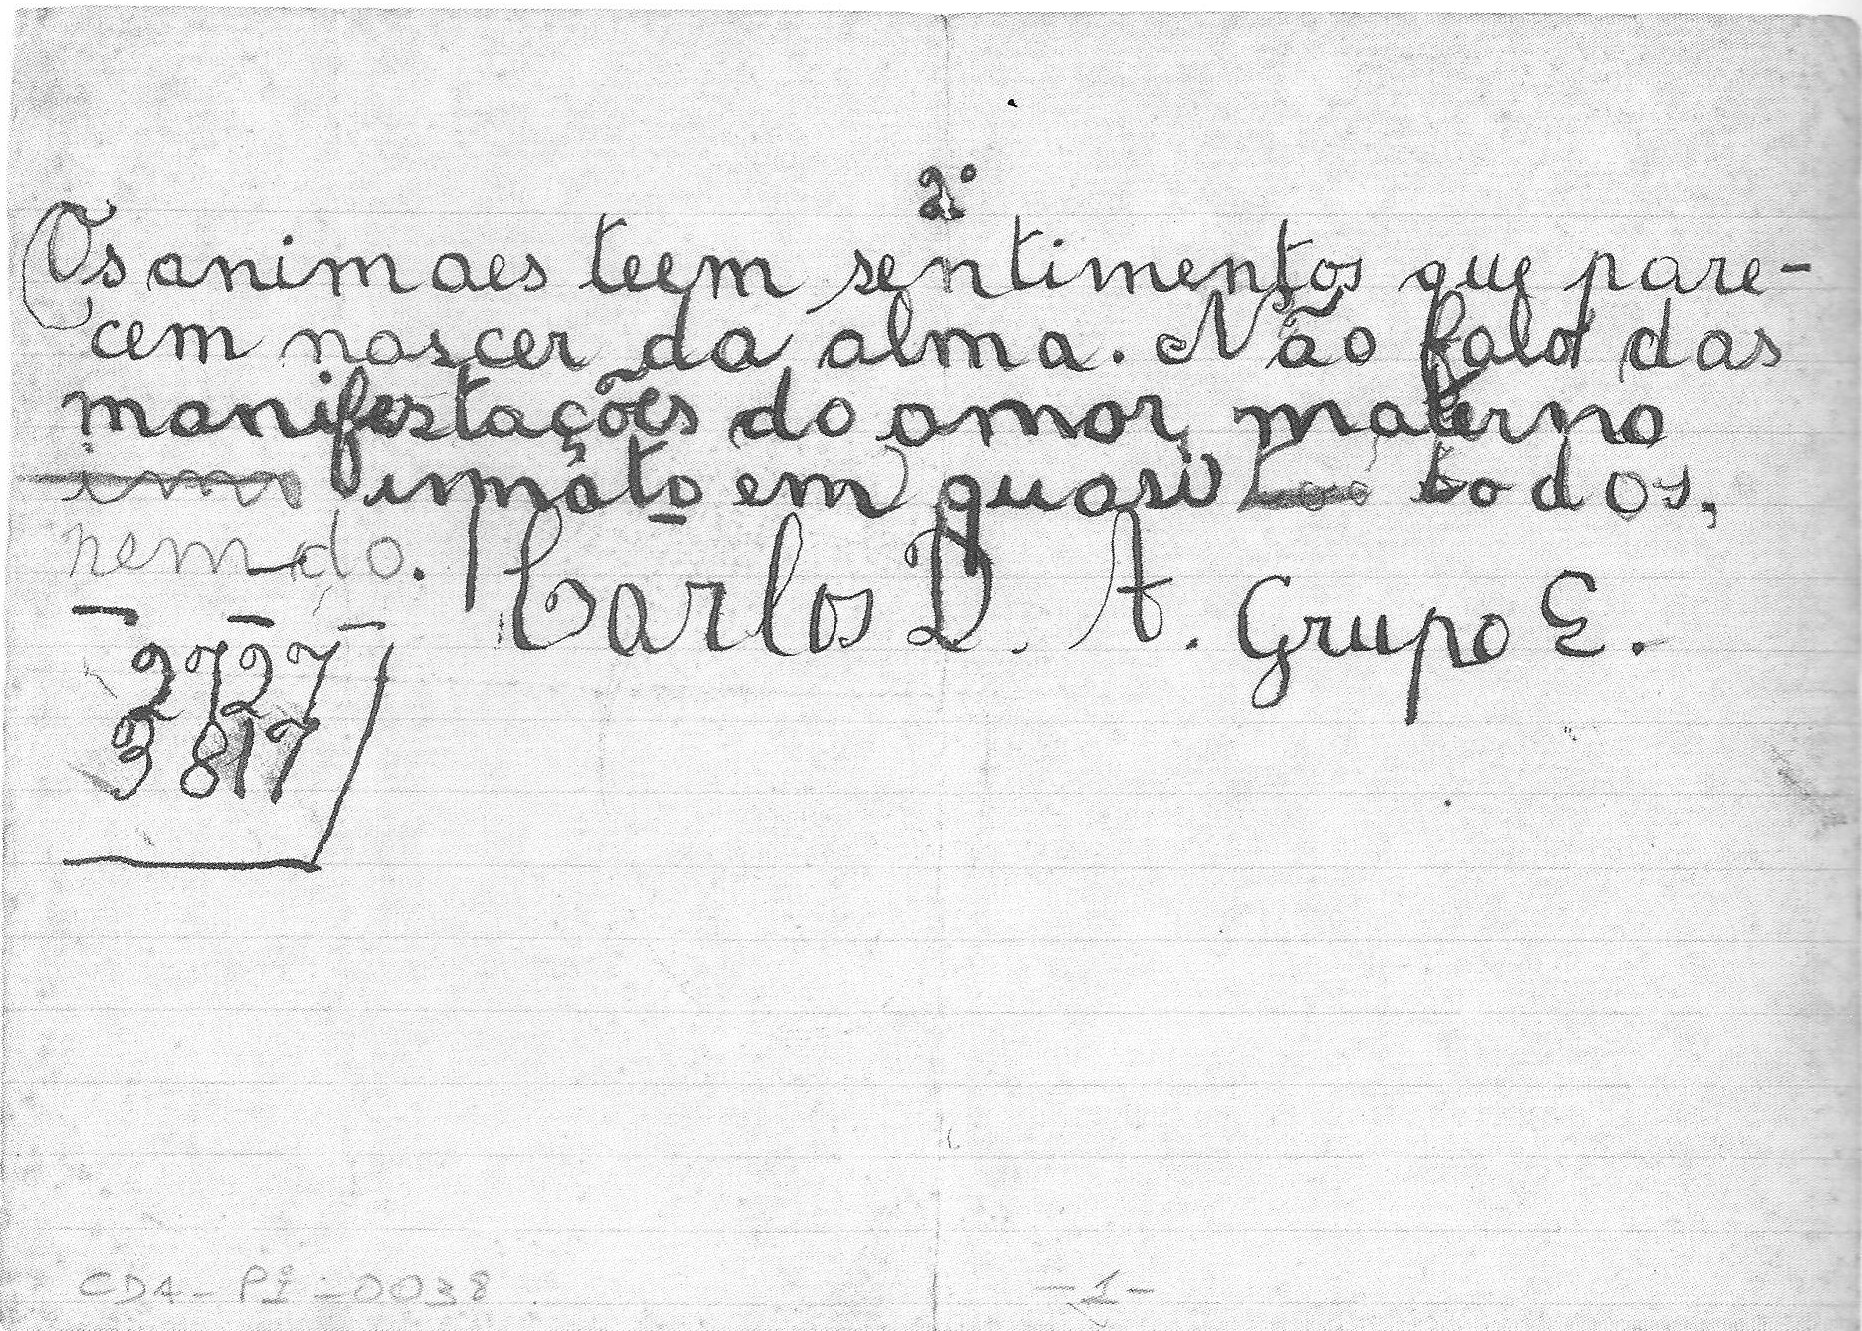 2º
Os animaes teem sentimentos que pare-
cem nascer da alma. Não falo das
manifestações do amor materno
inna innato em quasi todos,
nem do. Carlos D. A. Grupo E.
2727
3817
CDA - PI - 0038
-1-